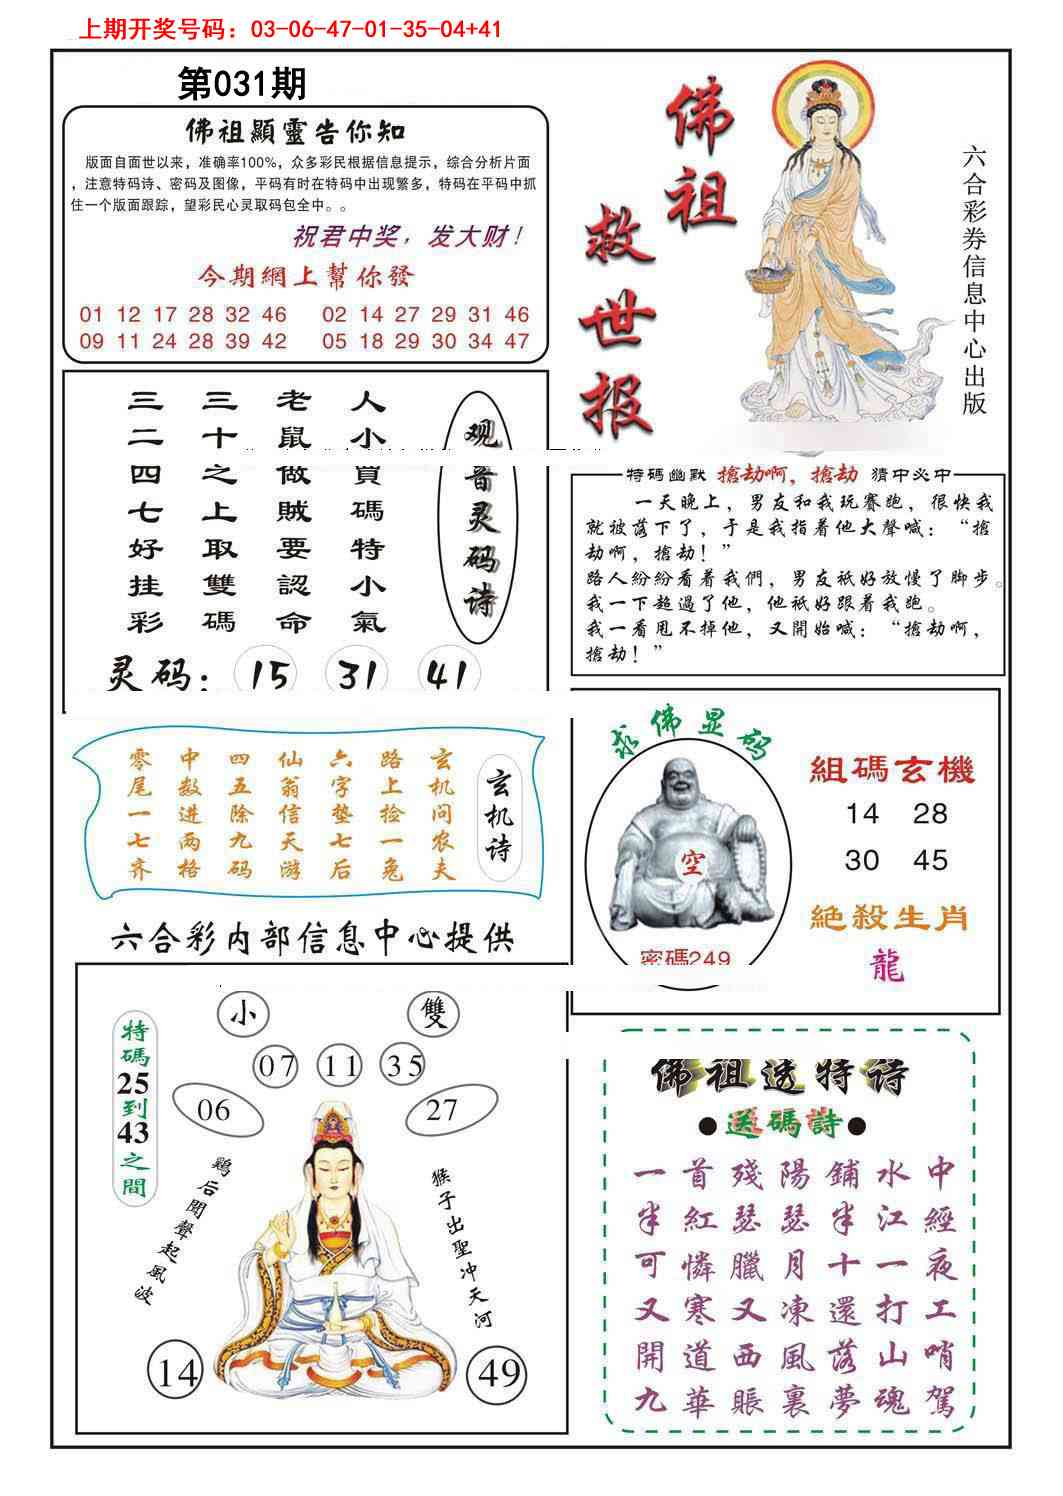 上期开奖号码：03-06-47-01-35-04+41
第031期
佛祖顯靈告你知
版面自面世以来，准确率100%，众多彩民根据信息提示，综合分析片面
，注意特码诗、密码及图像，平码有时在特码中出现繁多，特码在平码中抓
住一个版面跟踪，望彩民心灵取码包全中。。
祝君中奖，发大财！
今期網上幫你發
01 12 17 28 32 46 02 14 27 29 31 46
09 11 24 28 39 42 05 18 29 30 34 47
佛祖
救世报
六合彩券信息中心出版
观音灵码诗
人小買碼特小氣
老鼠做賊要認命
三十之上取雙碼
三二四七好挂彩
灵码：15 31 41
特碼幽默 搶劫啊，搶劫 猜中必中
一天晚上，男友和我玩賽跑，很快我
就被落下了，于是我指着他大聲喊：“搶
劫啊，搶劫！”
路人紛紛看着我們，男友祇好放慢了脚步。
我一下超過了他，他祇好跟着我跑。
我一看甩不掉他，又開始喊：“搶劫啊，
搶劫！”
玄机诗
玄机问农夫
路上捡一兔
六字垫七后
仙翁信天游
四五除九码
中数进两格
零尾一七齐
求佛显码
空
密碼249
組碼玄機
14 28
30 45
絶殺生肖
龍
六合彩内部信息中心提供
小 雙
07 11 35
06 27
特碼25到43之間
鷄后聞聲起風波
猴子出聖冲天河
14 49
佛祖透特诗
●送碼詩●
一首殘陽鋪水中
半紅瑟瑟半江經
可憐臘月十一夜
又寒又凍還打工
開道西風落山哨
九華賬裏夢魂駕